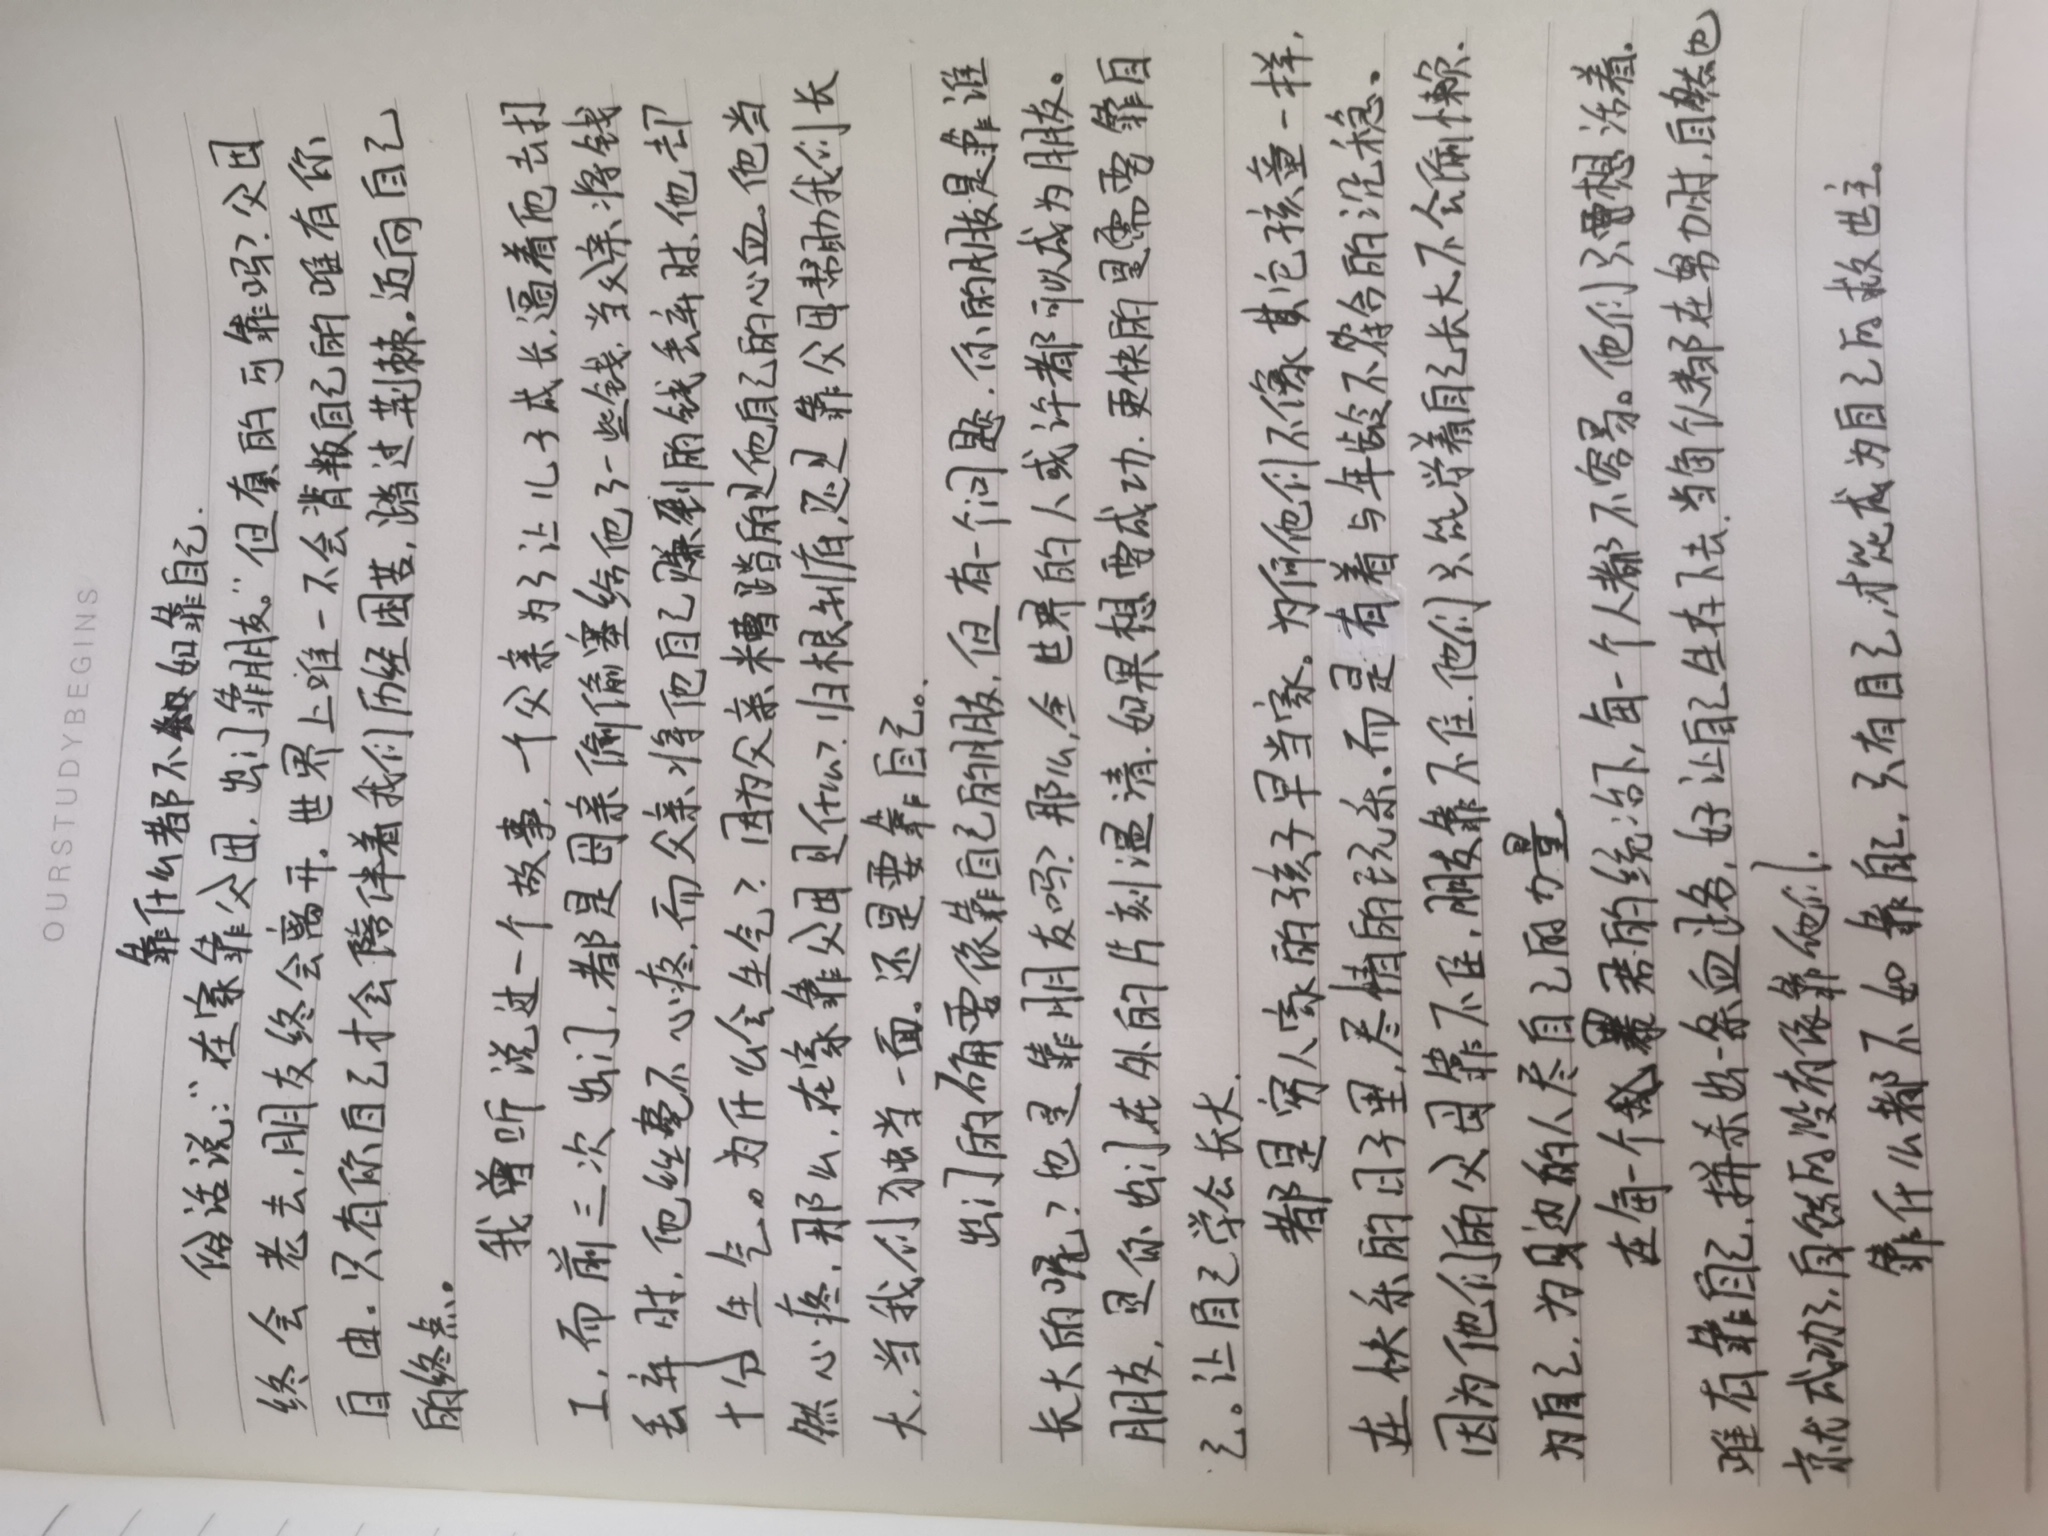 OURSTUDYBEGINS
靠什么都不如靠自己.
俗话说:"在家靠父母，出门靠朋友。"但真的可靠吗？父母
终会老去，朋友终会离开。世界上唯一不会背叛自己的唯有你
自己。只有你自己才会陪伴着我们历经困苦，踏过荆棘。迈向自己
的终点。
我曾听说过一个故事，一个父亲为了让儿子成长，逼着他去打
工，而前三次出门，都是母亲偷偷塞给他了一些钱，当父亲将钱
丢弃时，他丝毫不心疼，而父亲将他自己赚到的钱丢弃时，他却
十分生气。为什么会生气？因为父亲糟蹋的是他自己的心血。他当
然心疼，那么，在家靠父母是什么？归根到底，还是靠父母帮助我们长
大，当我们独当一面。还是要靠自己。
出门的确要依靠自己的朋友，但有一个问题，你的朋友是靠谁
长大的呢？也是靠朋友吗？那么，全世界的人或许都可以成为朋友。
朋友，是你出门在外的片刻温清.如果想要成功，更快的是需要靠自
己。让自己学会长大.
都是穷人家的孩子早当家。为何他们不像其它孩童一样，
在快乐的日子里，尽情的玩乐、而是有着与年龄不符合的沉稳。
因为他们的父母靠不住，朋友靠不住.他们只能学着自己长大不会偷懒.
为自己，为身边的人尽自己的力量.
在每一个暴君的统治下，每一个人都不容易。他们只想活着.
唯有靠自己，拼杀出一条血路，好让自己生存下去.当每个人都在努力时，自然也
就成功了，自然的没有依靠他们.
靠什么都不如靠自己，只有自己，才能成为自己的救世主。